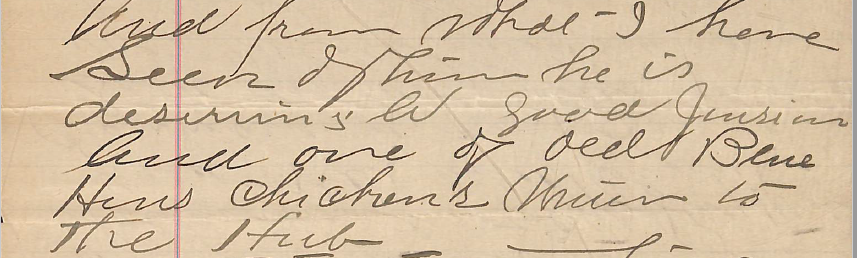 And from what I have
Seen of him he is
deserving a good Pension
And one of old Blue
Hens Chickens Union to
The Hub